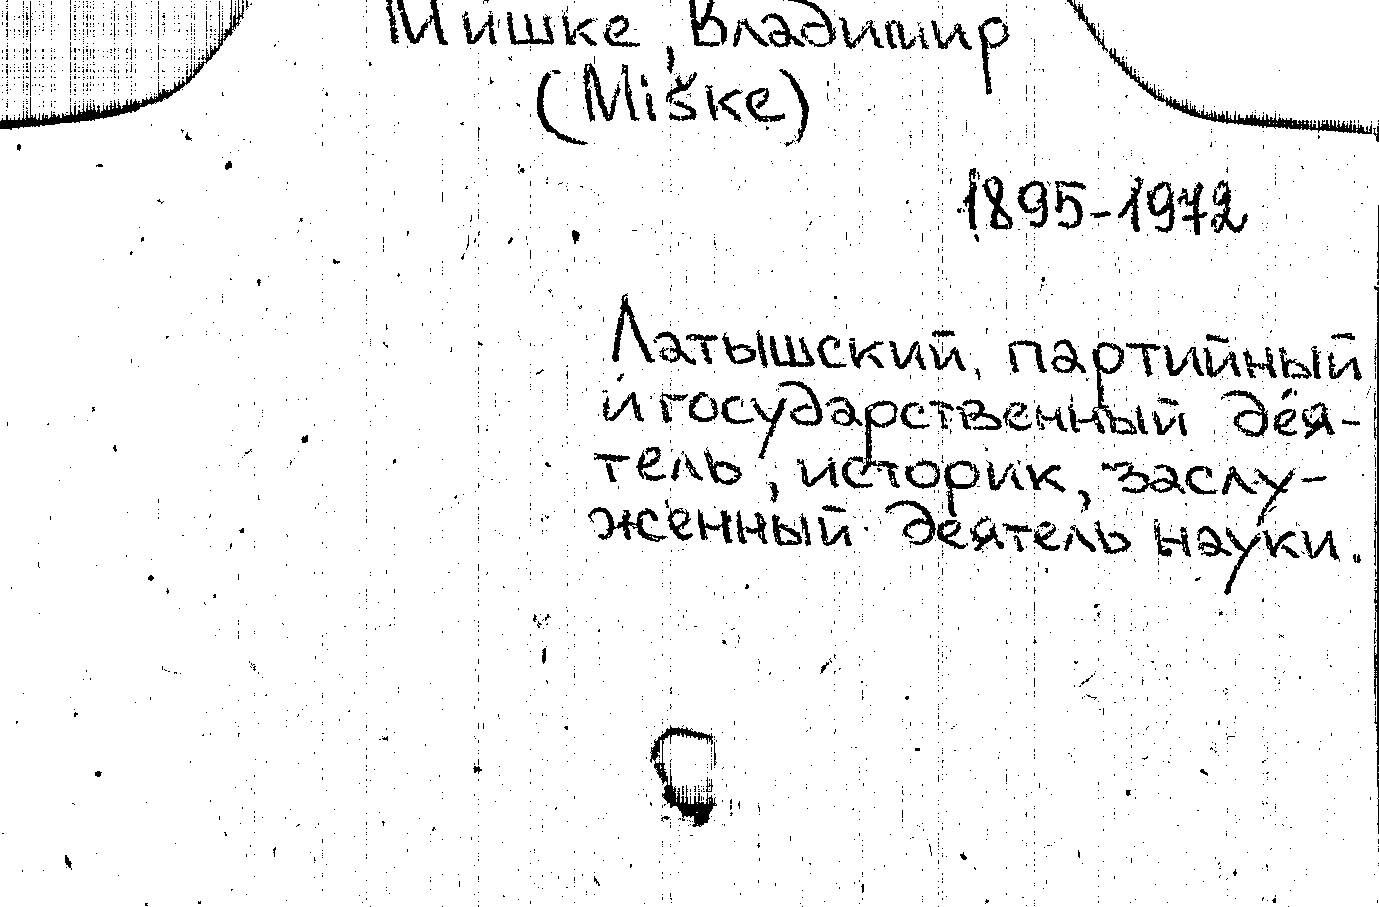 Мишке, Владимир
(Miške)
1895-1972
Латышский, партийный
и государственный дея-
тель, историк, заслу-
женный деятель науки.